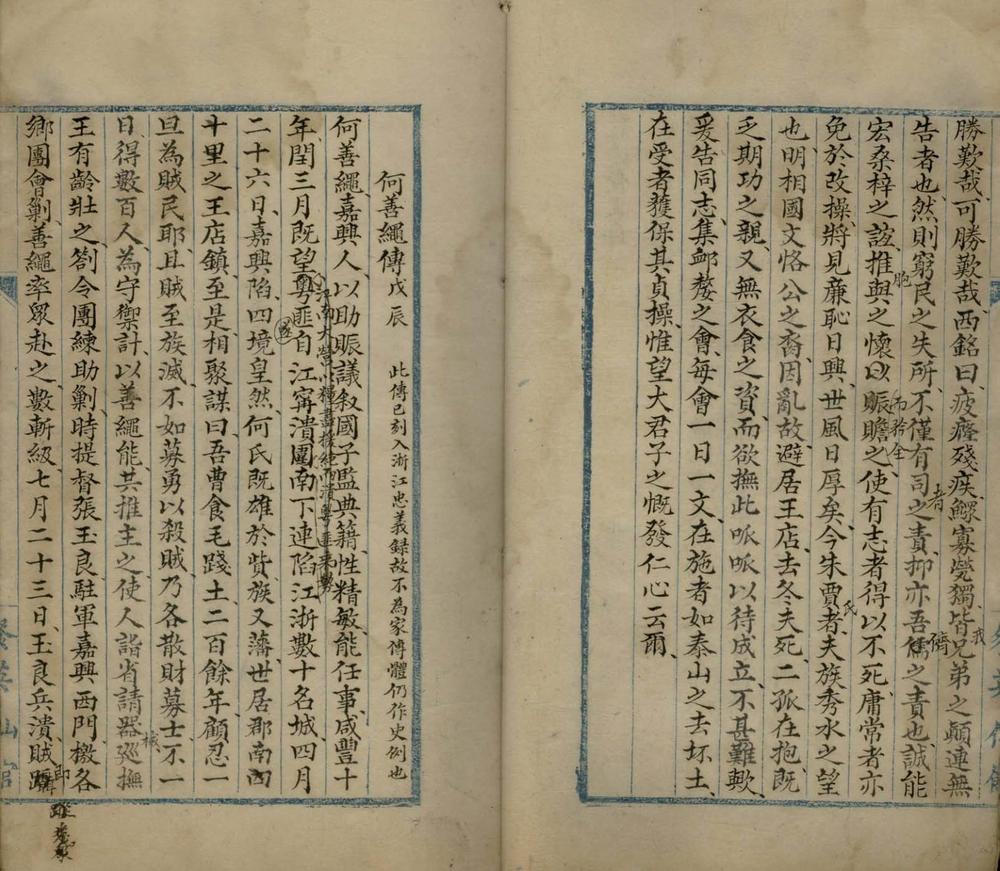 勝歎哉、可勝歎哉、西銘曰、疲癃殘疾、鰥寡煢獨、皆兄弟之顛連無
我
告者也、然則窮民之失所、不僅有司之責、抑亦吾儒之責也、誠能
者
儕
宏桑梓之誼、推與之懷、以賑贍之、使有志者得以不死、庸常者亦
胞
而矜全
免於改操、將見廉恥日興、世風日厚矣、今朱賈者、夫族秀水之望
氏
也、明相國文恪公之裔、因亂故、避居王店、去冬夫死、二孤在抱、既
乏期功之親、又無衣食之資、而欲撫此呱呱以待成立、不甚難歟、
爰告同志、集卹嫠之會、每會一日一文、在施者如泰山之去坏土、
在受者獲保其貞操、惟望大君子之慨發仁心云爾、
何善繩傳 戊辰 此傳已刻入浙江忠義錄故不為家傳體仍作史例也
何善繩、嘉興人、以助賑議敘國子監典籍、性精敏、能任事、咸豐十
年、閏三月既望、粵匪自江寧潰圍南下、連陷江浙數十名城、四月
江南大營以糧盡援絕而潰粵匪乘勢
二十六日、嘉興陷、四境皇然、何氏既雄於貲、族又藩、世居郡南四
遂
十里之王店鎮、至是相聚謀曰、吾曹食毛踐土二百餘年、顧忍一
旦為賊民耶、且賊至族滅、不如募勇以殺賊、乃各散財募士、不一
日、得數百人、為守禦計、以善繩能、共推主之、使人詣省請器、巡撫
械
王有齡壯之、劄令團練助剿、時提督張玉良駐軍嘉興西門、檄各
鄉團會剿、善繩率眾赴之、數斬級、七月二十三日、玉良兵潰、賊躡
即